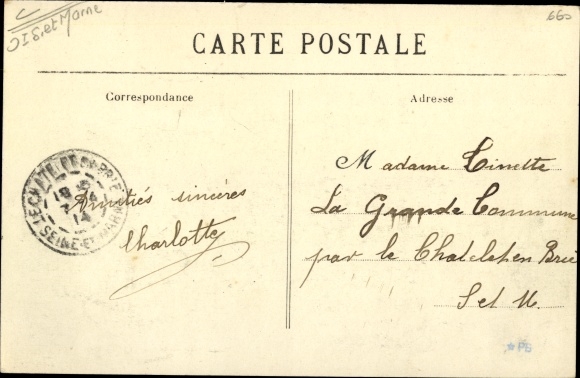 Seine et Marne
660
CARTE POSTALE
Correspondance
Adresse
LE CHATELET-EN-BRIE
14
SEINE-ET-MARNE
Amitiés sincères
Charlotte
Madame Linette
La Grande Commune
par le Chatelet en Brie
S et M.
*PB